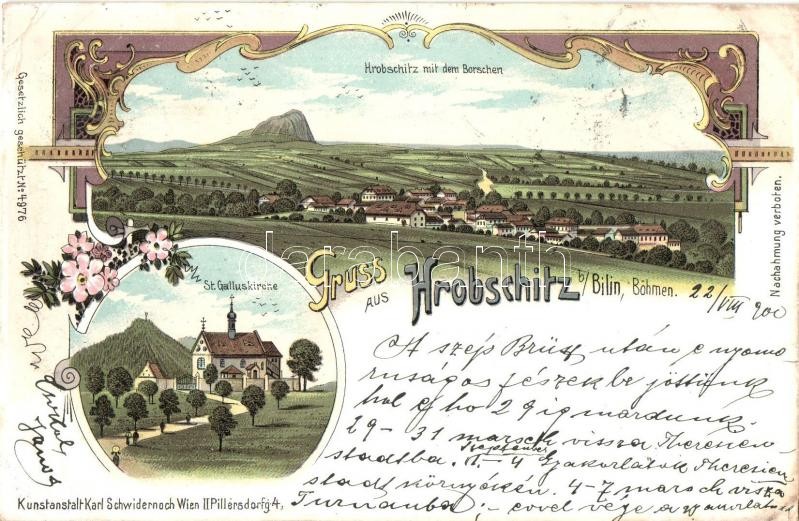 Hrobschitz mit dem Borschen
Gesetzlich geschützt No 4976
Nachahmung verboten.
Gruss
AUS
Hrobschitz b/ Bilin, Böhmen.
St. Galluskirche
darabanth.com
22/VIII 900
A szép Brüx után e nyomo-
ruságos fészekbe jöttünk
hol e hó 29ig maradunk.
29-31 marsch vissza Theresien-
stadtba. September 1-4 Gyakorlatok Theresien
stadt környékén. 4-7 marsch vissza
Turnauba; - ezzel vége a gyakorlatnak
János
Kunstanstalt Karl Schwidernoch Wien II Pillersdorfg 4,